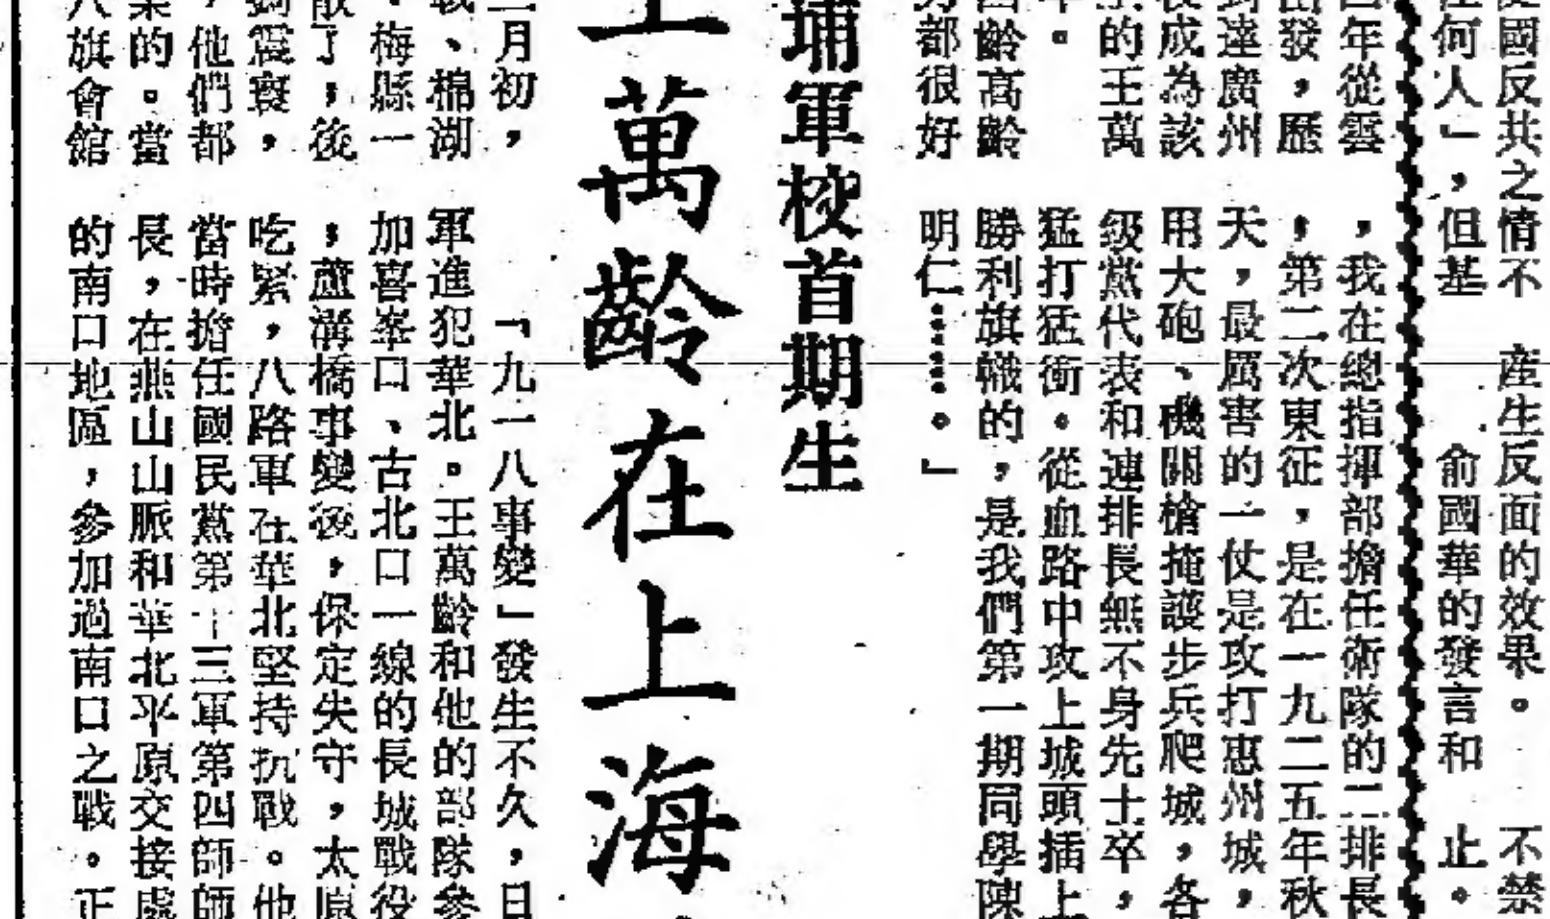 國反共之情不 產生反面的效果。 不禁
何人」，但基 俞國華的發言和 止。
年從雲
發，歷
達廣州
成為該
的王萬
。
齡高齡
都很好
，我在總指揮部擔任衛隊的二排長
，第二次東征，是在一九二五年秋
天，最厲害的一仗是攻打惠州城，
用大砲、機關槍掩護步兵爬城，各
級黨代表和連排長無不身先士卒，
猛打猛衝。從血路中攻上城頭插上
勝利旗幟的，是我們第一期同學陳
明仁……。」
埔軍校首期生
萬齡在上海
月初，
、棉湖
、梅縣一
了，後
震寰，
，他們都
的。當
八旗會館
「九一八事變」發生不久，日
軍進犯華北。王萬齡和他的部隊參
加喜峯口、古北口一線的長城戰役
，蘆溝橋事變後，保定失守，太原
吃緊，八路軍在華北堅持抗戰。他
當時擔任國民黨第十三軍第四師師
長，在燕山山脈和華北平原交接處
的南口地區，參加過南口之戰。正